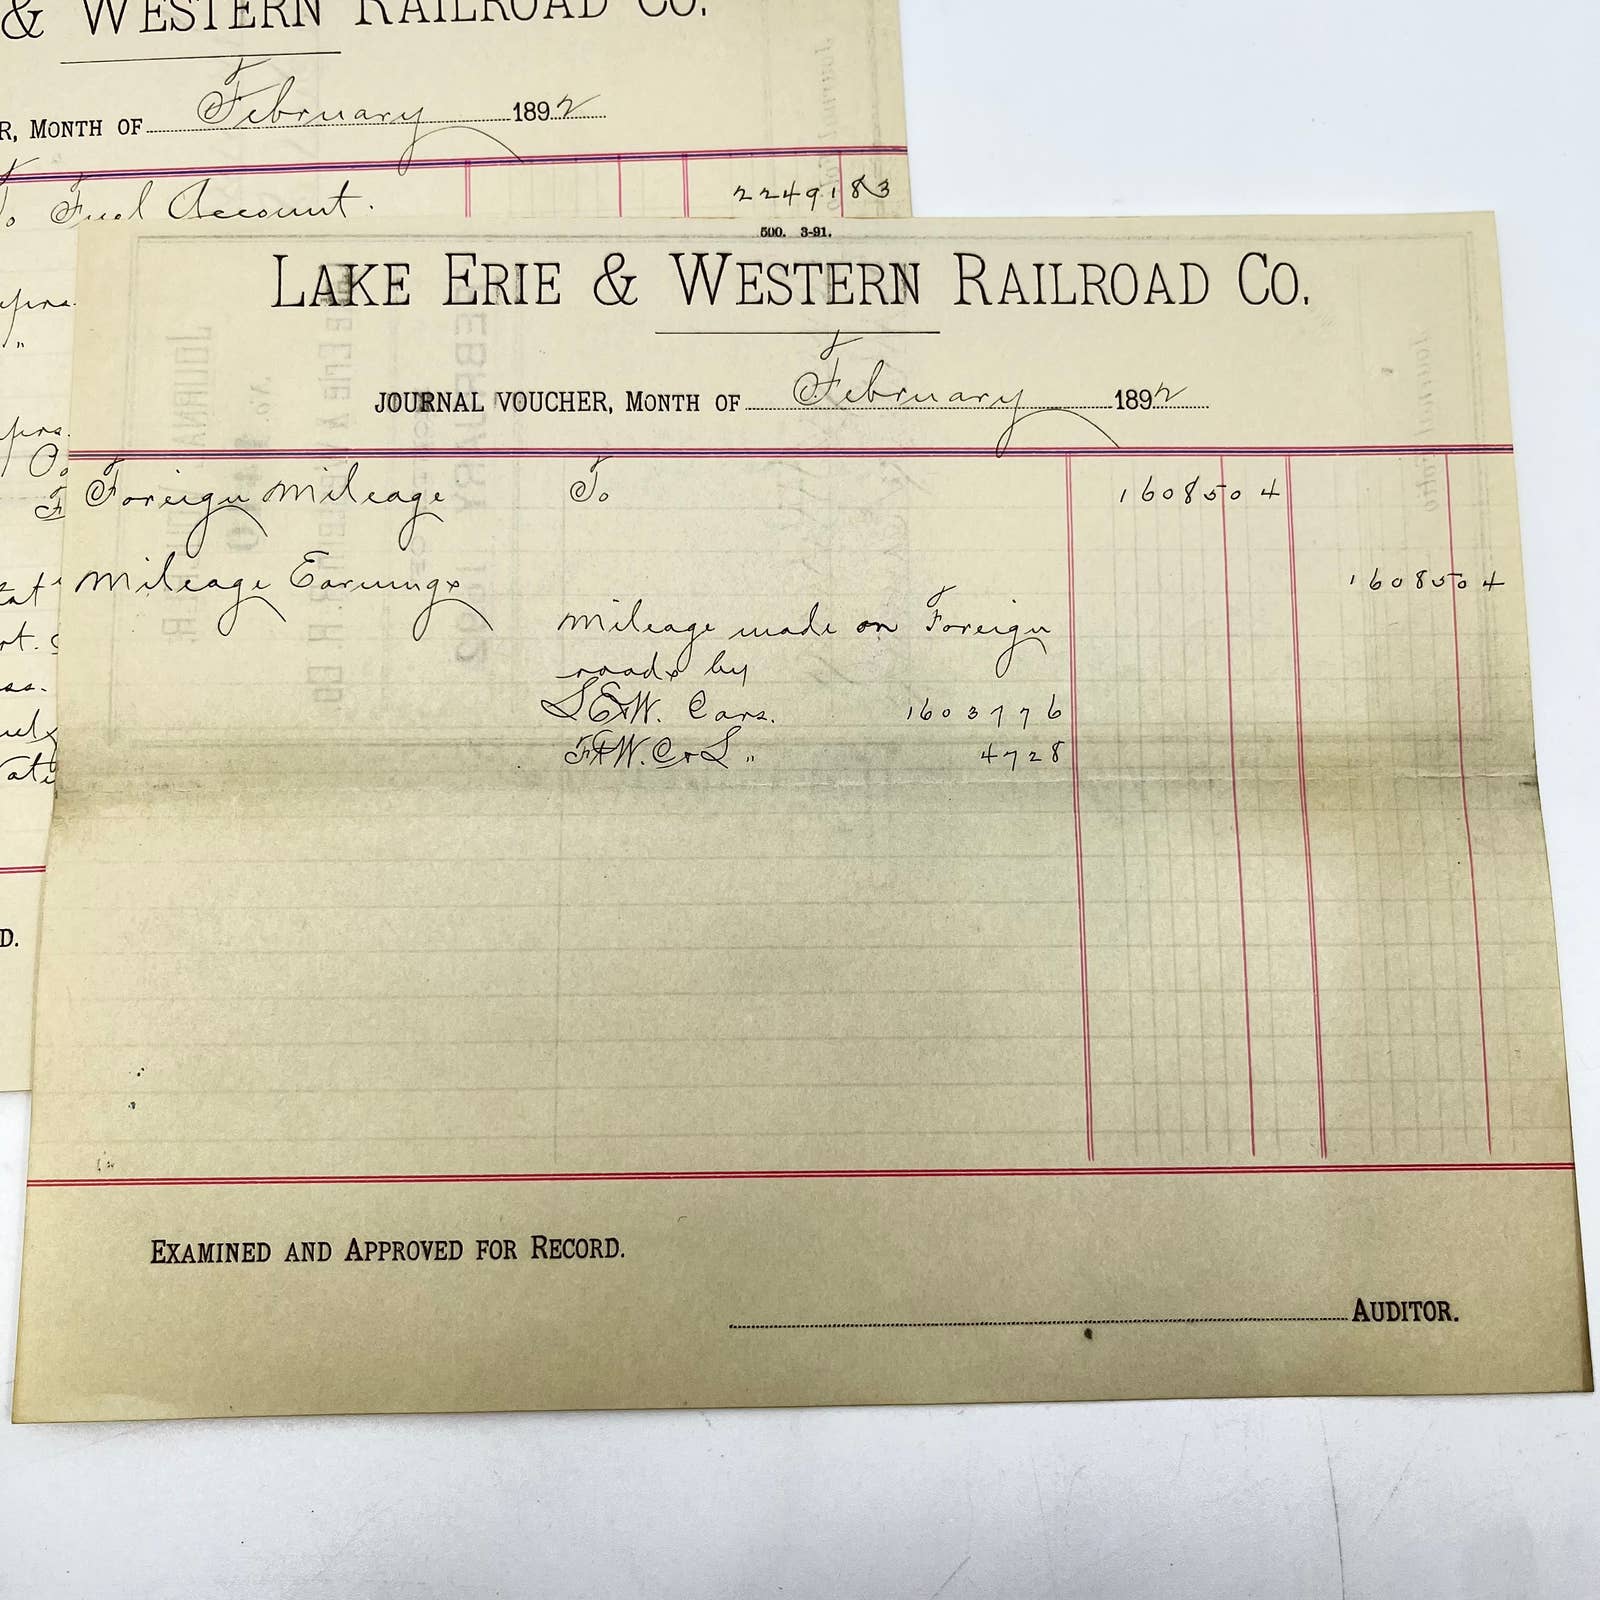 & WESTERN RAILROAD CO.
R, MONTH OF February 1892
To Fuel Account. 22491 83
500. 3-91.
LAKE ERIE & WESTERN RAILROAD CO.
JOURNAL VOUCHER, MONTH OF February 1892
Foreign Mileage To 16085 04
Mileage Earnings 16085 04
Mileage made on Foreign
roads by
L E & W. Cars. 16037 76
Ft W. C & L " 47 28
EXAMINED AND APPROVED FOR RECORD.
AUDITOR.
D.